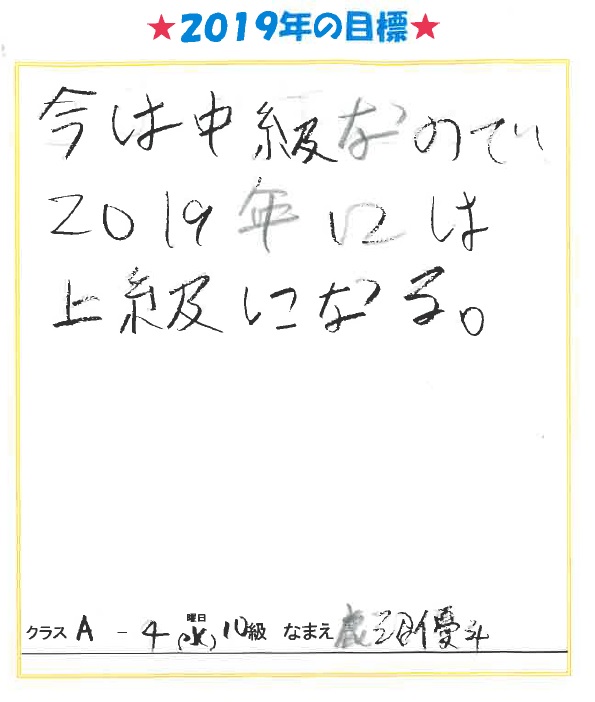 ★2019年の目標★
今は中級なので
2019年には
上級になる。
曜日
クラス A - 4 (水) 10級 なまえ 鹿沼優斗